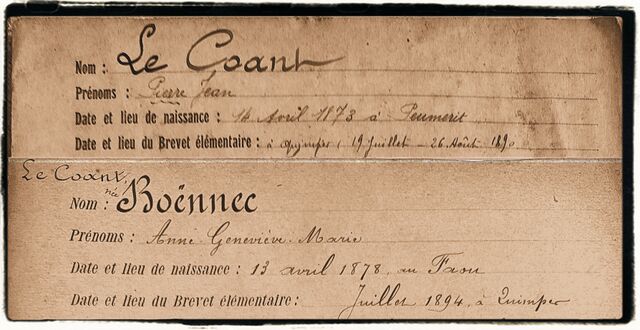 Nom : Le Coant
Prénoms : Pierre Jean
Date et lieu de naissance : 14 Avril 1873 à Peumerit
Date et lieu du Brevet élémentaire : à Quimper, 19 Juillet - 26 Août 1890
Le Coant,
née
Nom : Boënnec
Prénoms : Anne Geneviève Marie
Date et lieu de naissance : 13 avril 1878, au Faou
Date et lieu du Brevet élémentaire : Juillet 1894, à Quimper